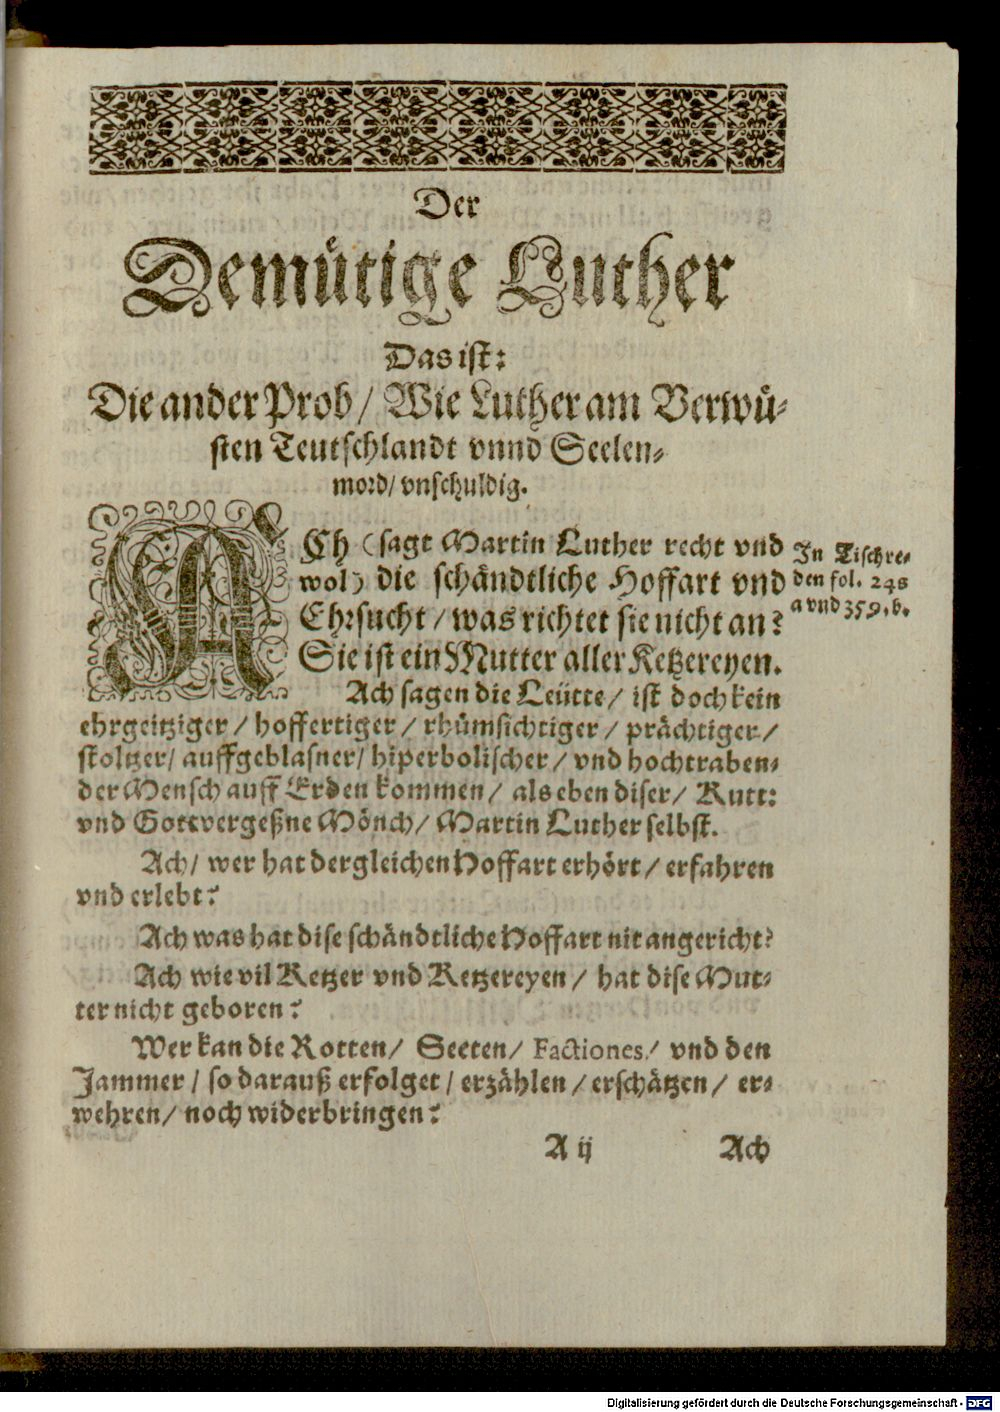 Der
Demütige Luther
Das ist:
Die ander Prob/ Wie Luther am Verwü-
sten Teutschlandt vnnd Seelen-
mord/ vnschuldig.
ACh (sagt Martin Luther recht vnd
wol) die schändtliche Hoffart vnd
Ehrsucht/ was richtet sie nicht an?
Sie ist ein Mutter aller Ketzereyen.
In Tischre-
den fol. 248
a vnd 359. b.
Ach sagen die Leütte/ ist doch kein
ehrgeitziger/ hoffertiger/ rhümsichtiger/ prächtiger/
stoltzer/ auffgeblasner/ hiperbolischer/ vnd hochtraben-
der Mensch auff Erden kommen/ als eben diser/ Kutt:
vnd Gottvergeßne Mönch/ Martin Luther selbst.
Ach/ wer hat dergleichen Hoffart erhört/ erfahren
vnd erlebt?
Ach was hat dise schändtliche Hoffart nit angericht?
Ach wie vil Ketzer vnd Ketzereyen/ hat dise Mut-
ter nicht geboren?
Wer kan die Rotten/ Secten/ Factiones/ vnd den
Jammer/ so darauß erfolget/ erzählen/ erschätzen/ er-
wehren/ noch widerbringen?
A ij Ach
Digitalisierung gefördert durch die Deutsche Forschungsgemeinschaft - DFG